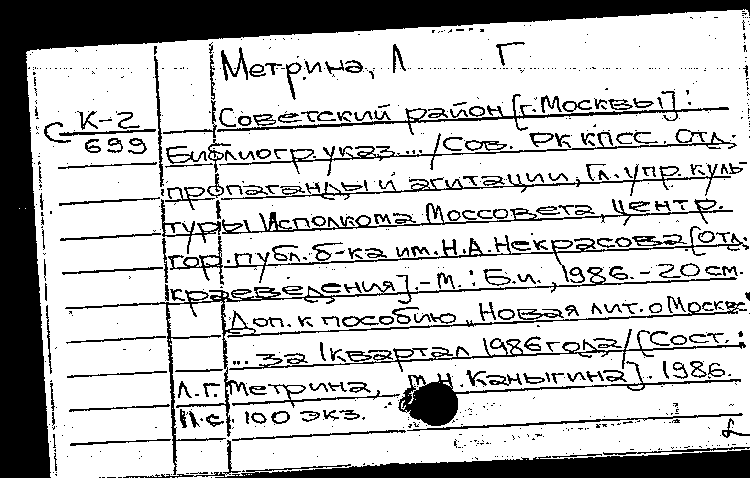 Метрина, Л Г
С К-2
699
Советский район [г. Москвы]:
Библиогр. указ... / Сов. РК КПСС. Отд.
пропаганды и агитации, Гл. упр. куль-
туры Исполкома Моссовета, Центр.
гор. публ. б-ка им. Н.А. Некрасова [Отд.
краеведения]. - М. : Б.и., 1986. - 20 см.
Доп. к пособию „Новая лит. о Москве"
... за I квартал 1986 года / [Сост.:
Л.Г. Метрина, М.Н. Каныгина]. 1986.
11 с. 100 экз.